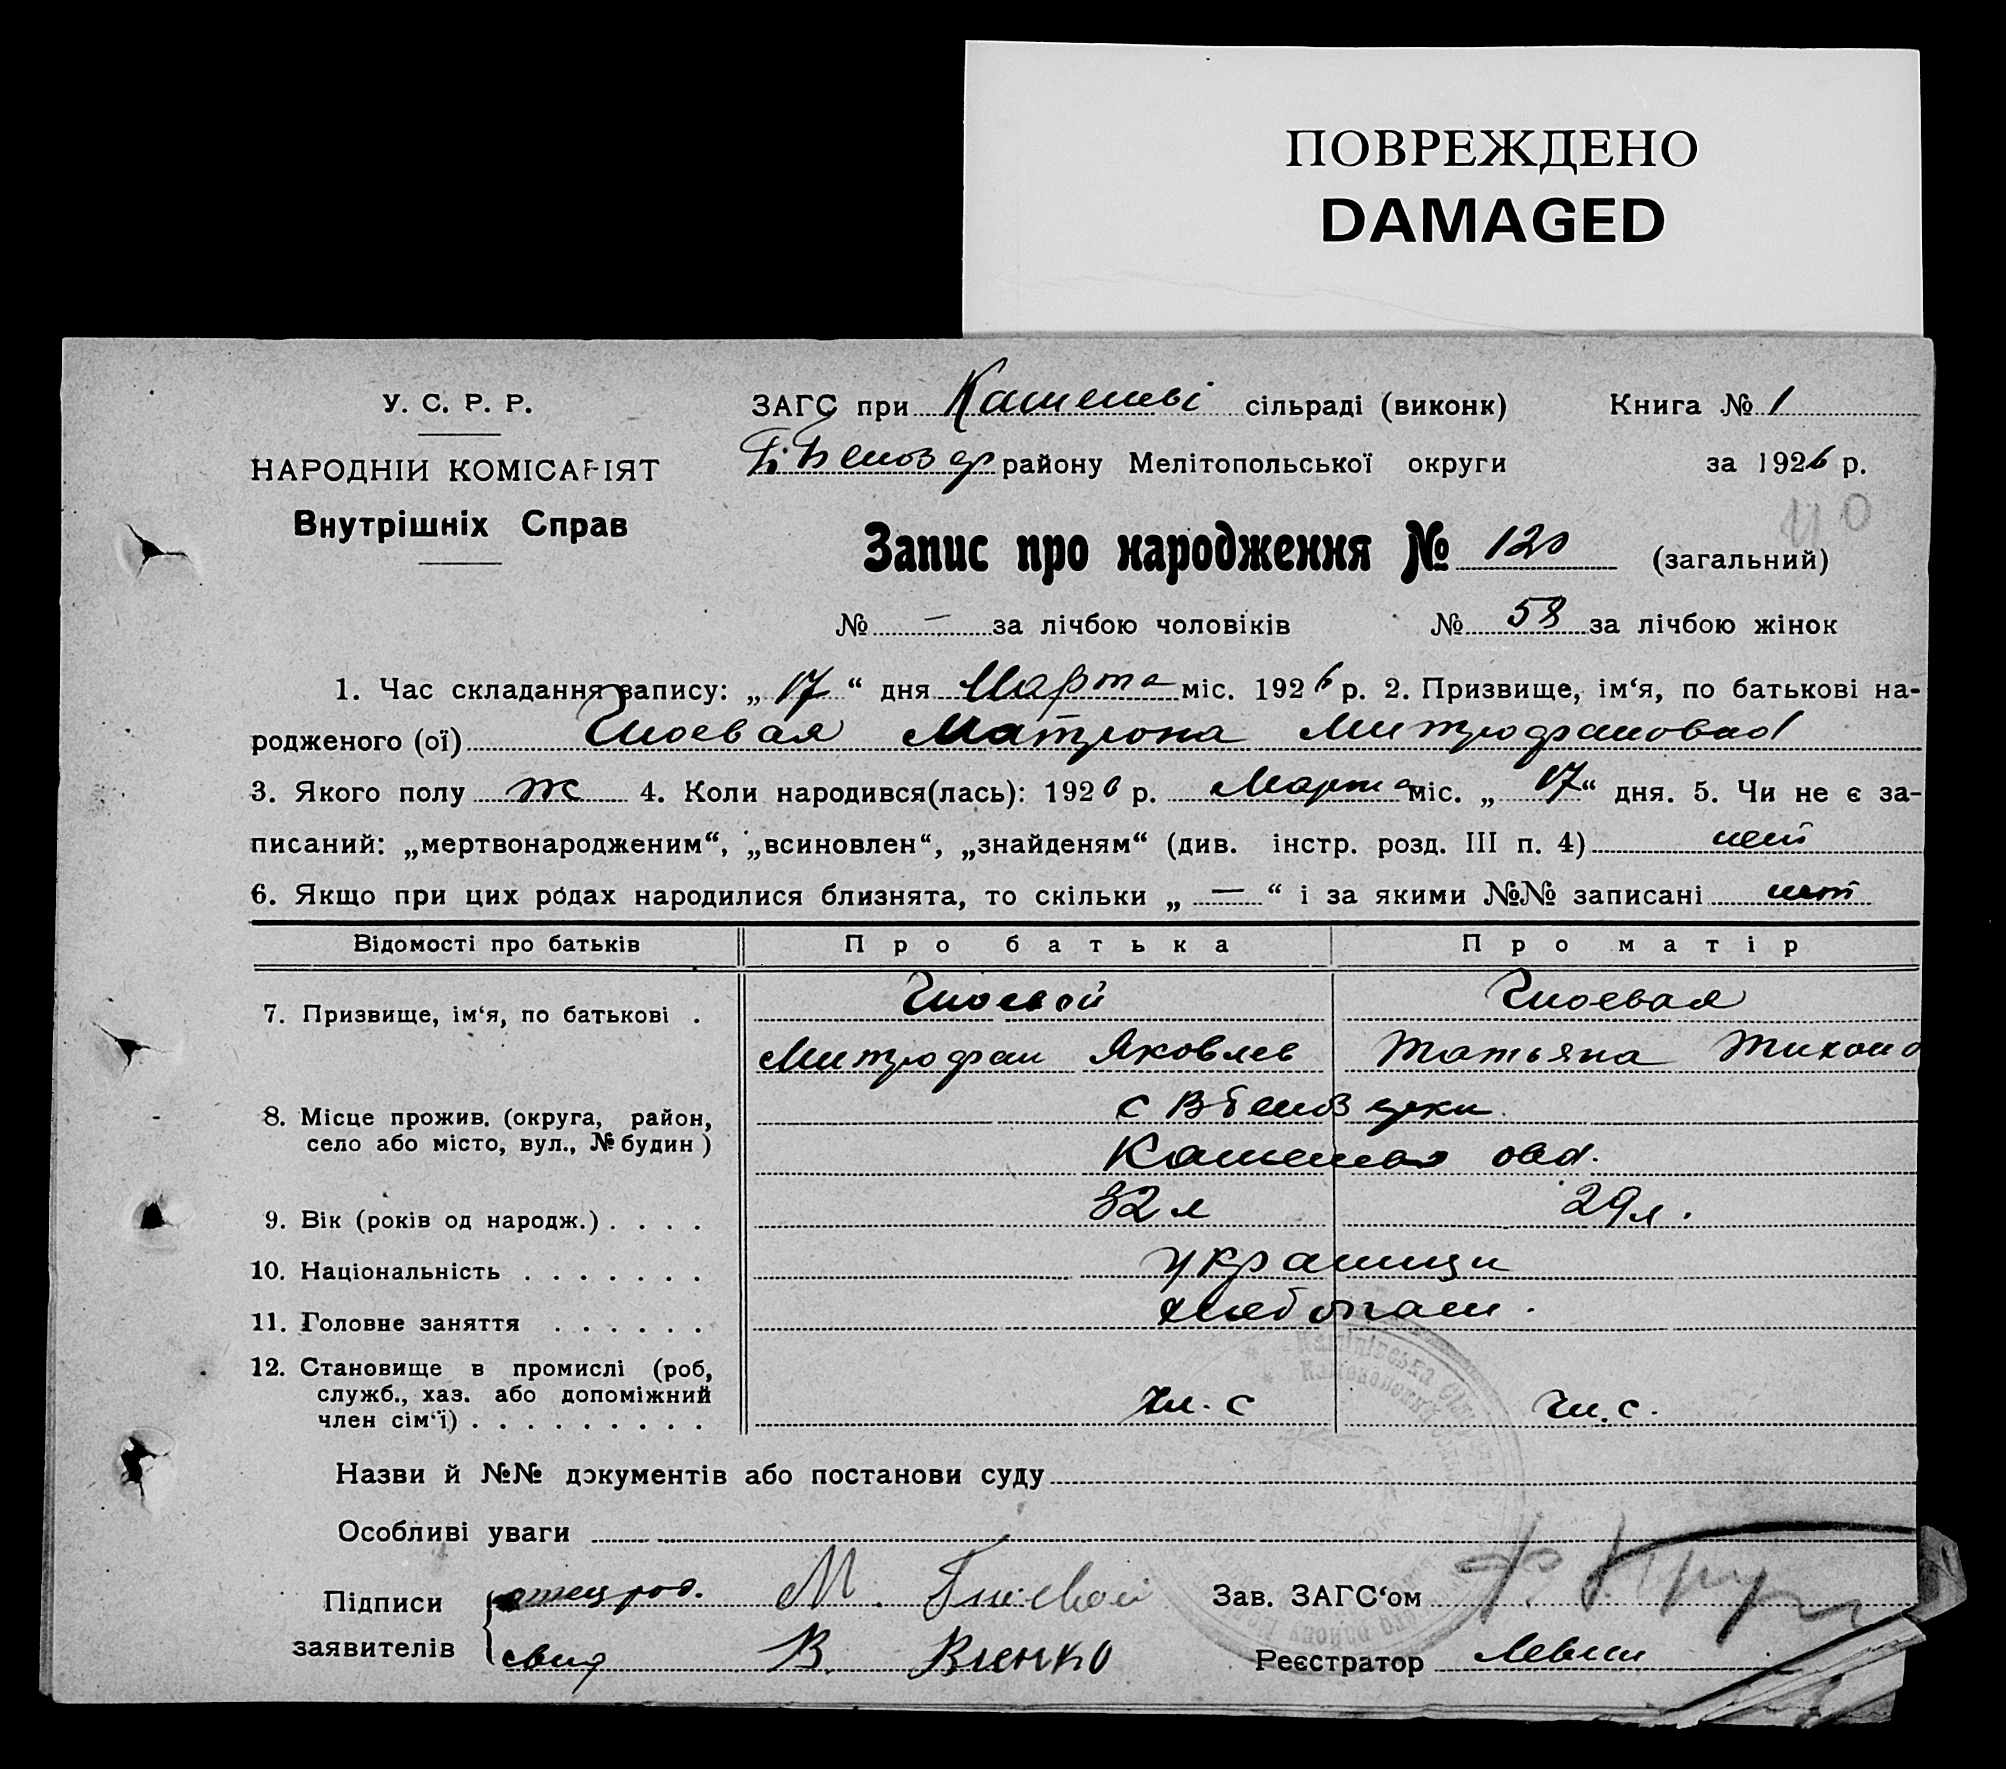 ПОВРЕЖДЕНО
DAMAGED
У. С. Р. Р.
НАРОДНІЙ КОМІСАРІЯТ
Внутрішніх Справ
ЗАГС при сільраді (виконк) Книга № 1
району Мелітопольської округи за 1926 р.
40
Запис про народження № 120 (загальний)
№ — за лічбою чоловіків № 58 за лічбою жінок
1. Час складання запису: „ 17 “ дня Марта міс. 1926 р. 2. Призвище, ім‘я, по батькові на-
родженого (ої) Гноевая Матрона Митрофановна
3. Якого полу ж 4. Коли народився(лась): 1926 р. Марта міс. „ 17 “ дня. 5. Чи не є за-
писаний: „мертвонародженим“, „всиновлен“, „знайденям“ (див. інстр. розд. III п. 4) нет
6. Якщо при цих родах народилися близнята, то скільки „ — “ і за якими №№ записані нет
Відомості про батьків Про батька Про матір
7. Призвище, ім‘я, по батькові . Гноевой Гноевая
Митрофан Яковлев Татьяна Тихоно
8. Місце прожив. (округа, район,
село або місто, вул., № будин )
9. Вік (років од народж.) . . . . 32 л 29 л.
10. Національність . . . . . . . украинци
11. Головне заняття . . . . . . хлебопаш.
12. Становище в промислі (роб,
служб., хаз. або допоміжний
член сім‘ї) . . . . . . . . . чл. с чл. с.
Назви й №№ документів або постанови суду
Особливі уваги
Підписи
заявителів
отец М. Гноевой Зав. ЗАГС‘ом
свид В. Реєстратор Левин